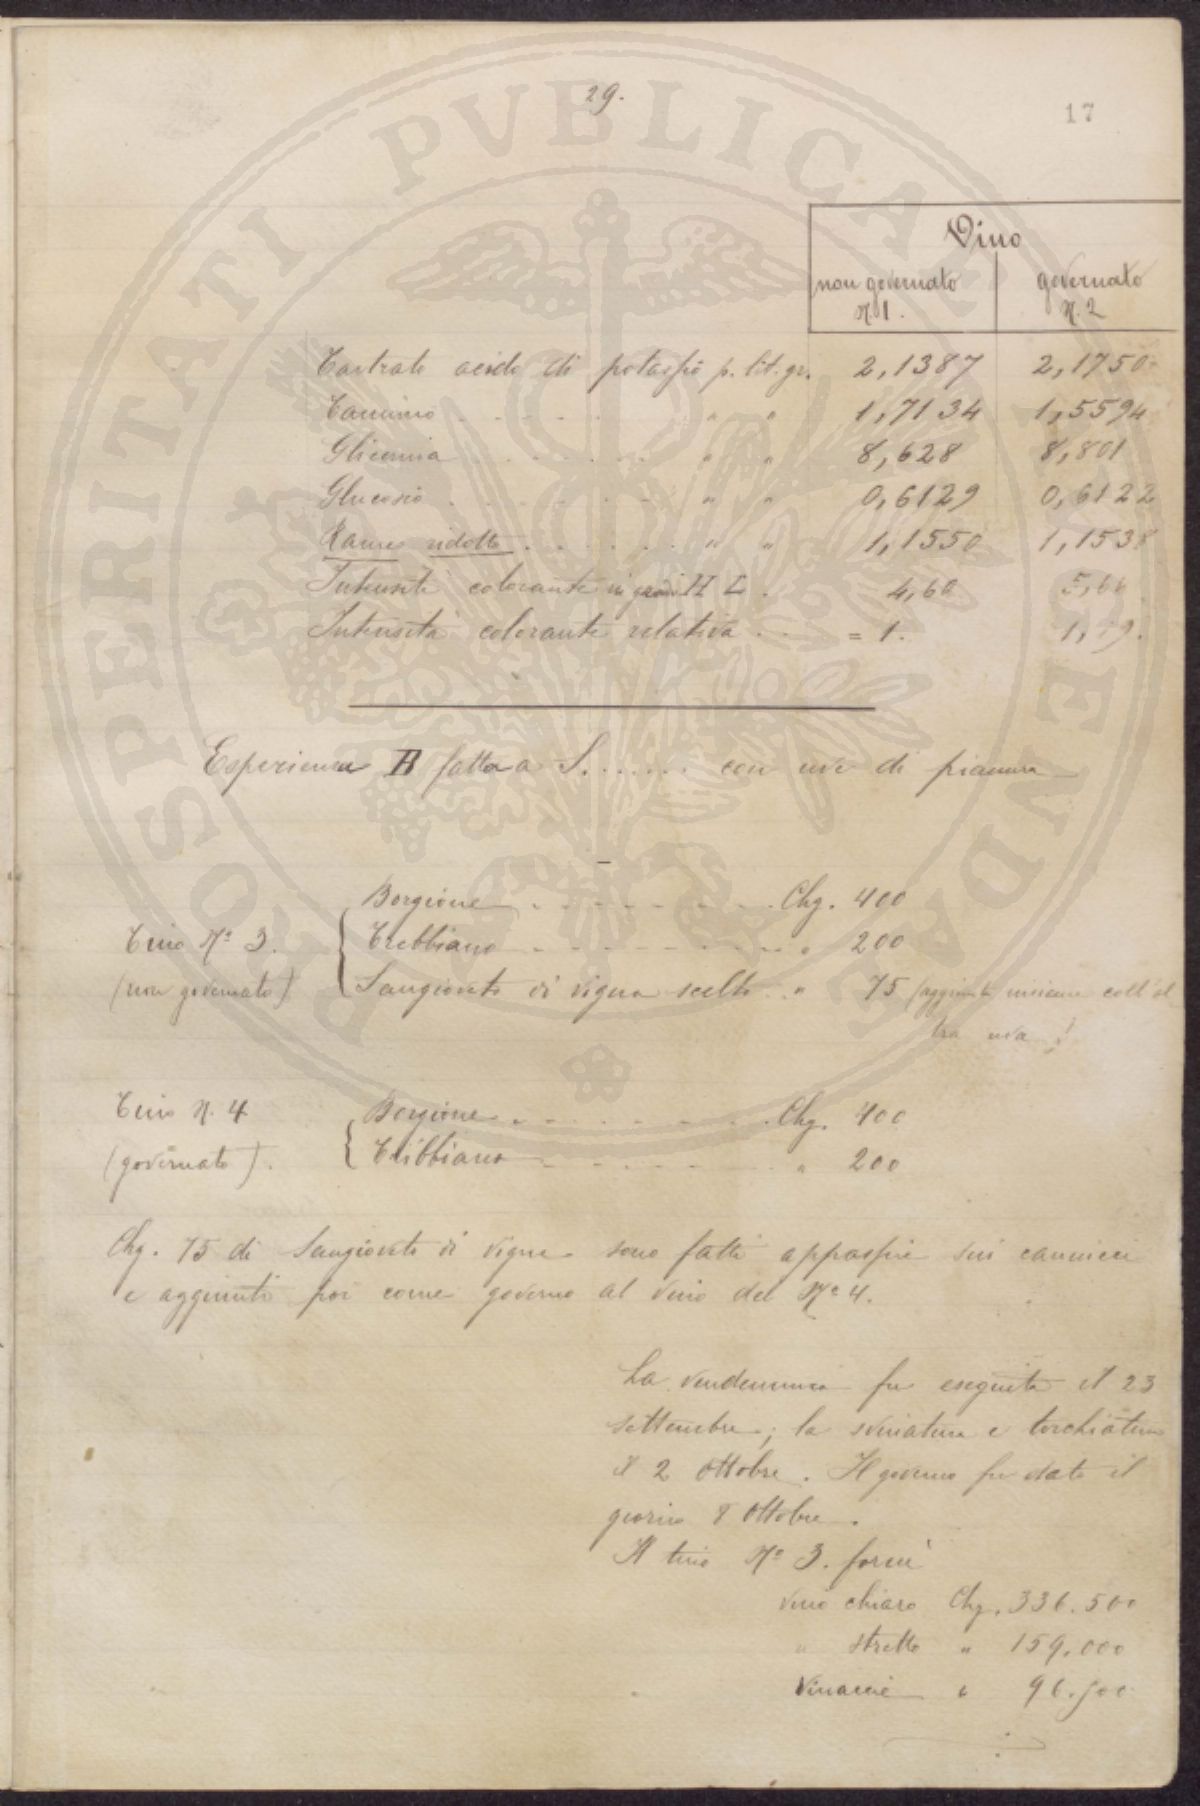 29.
17
Vino
non governato governato
N. 1. N. 2
Tartrato acido di potassio p. lit. gr. 2,1387 2,1750
Tannino . . . . . . " " 1,7134 1,5594
Glicerina . . . . . . " " 8,628 8,801
Glucosio . . . . . . " " 0,6129 0,6122
Rame ridotto . . . . . . " " 1,1550 1,1538
Intensità colorante in gradi H L . 4,60
Intensità colorante relativa . . . = 1.
Esperienza B fatta a S. . . . . . . con uve di pianura
Borgione . . . . . . . . . Chg. 400
Tino Nº 3. Trebbiano . . . . . . . . . " 200
(non governato) Sangioveto di vigna scelto . " 75 (aggiunto insieme coll'al
tra uva !
Tino N. 4 Borgione . . . . . . . . . Chg. 400
(governato). Trebbiano . . . . . . . . . " 200
Chg. 75 di Sangioveto di vigna sono fatti appassire sui cannicci
e aggiunti poi come governo al vino del Nº 4.
La vendemmia fu eseguita il 23
settembre; la svinatura e torchiatura
il 2 Ottobre. Il governo fu dato il
giorno 8 Ottobre.
Il tino Nº 3. fornì
vino chiaro Chg. 336.500
" stretto " 159.000
Vinaccie " 96.500
PROSPERITATI PVBLICAE AVGENDAE